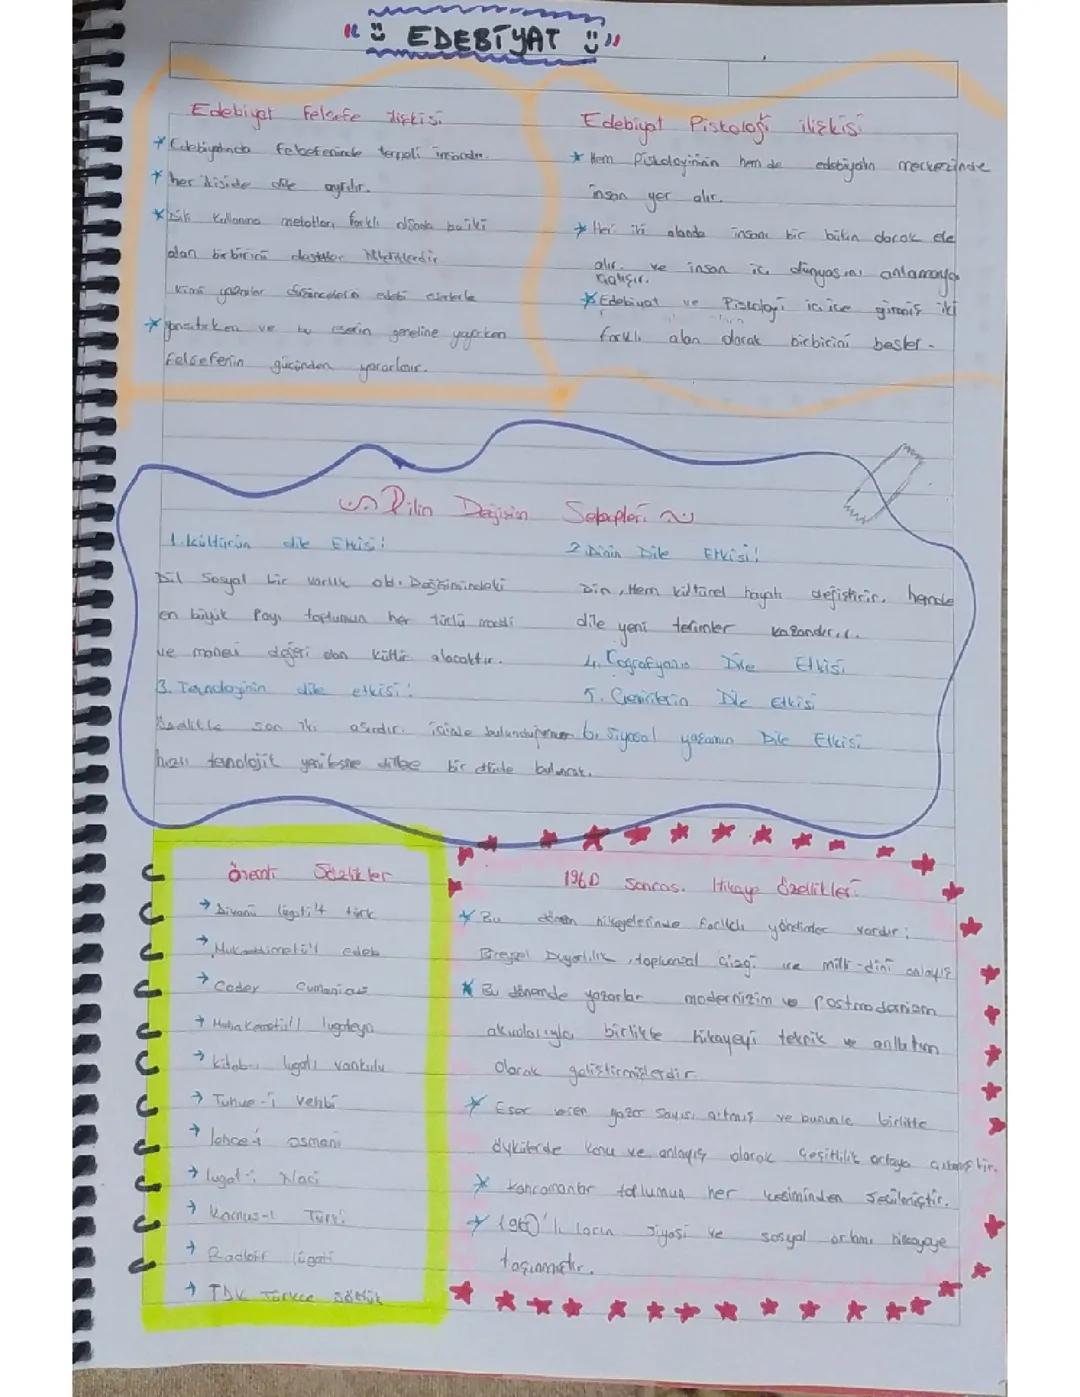 " EDEBİYAT "
Edebiyat Felsefe ilişkisi
* Edebiyatında felsefeninde temeli insandır.
* her ikiside dile ayrılır.
* Dili kullanma metotları farklı olsada bu iki
alan birbirini destekler niteliktedir
kimi yazarlar düşüncelerin edebi eserlerle
* yansıtırken ve bu eserin geneline yaparken
felseferin gücünden yararlanır.
Edebiyat Piskoloği ilişkisi
* Hem Piskolojinin hem de edebiyatın merkezinde
insan yer alır.
* Her iki alanda insanı bir bütün olarak ele
alır. ve insan iç dünyasını anlamaya
çalışır.
* Edebiyat ve Piskoloji iç içe girmiş iki
farklı alan olarak birbirini besler.
Dilin Değişim Sebepleri
1. kültürün dile Etkisi:
Dil Sosyal bir varlık old. Değişimindeki
en büyük Payı toplumun her türlü maddi
ve manevi değeri olan kültür alacaktır.
3. Teknolojinin dile etkisi:
son iki asırdır. içinde
hızlı teknolojik bir dilde
2. Dinin Dile Etkisi:
Din, Hem kültürel hayatı değiştirir. hemde
dile yeni terimler kazandırır.
4. Coğrafyanın Dile Etkisi
5. Çevirilerin Dile Etkisi
6. Siyasal yaşamın Dile Etkisi
Önemli Sözlükler
→ Divanü lügati't türk
→ Mukaddimetü'l edeb
→ Codex Cumanicus
→ Muhakemetü'l lugateyn
→ kitabı lügatı vankulu
→ Tuhve-i vehbi
→ lehce-i osmani
→ lugat-i Naci
→ Kamus-ı Türki
→ Radloff lügati
→ TDK Türkçe sözlük
1960 Sonrası Hikaye Özellikleri
* Bu dönem hikayelerinde farklı yönelimler vardır;
Bireysel Duyarlılık, toplumsal Çizgi ve milli-dini anlayış
* Bu dönemde yazarlar modernizim ve Postmodernizm
akımlarıyla birlikte hikayeyi teknik ve anlatım
Olarak geliştirmişlerdir.
* Eser veren yazar sayısı artmış ve bununla birlikte
öykülerde konu ve anlayış olarak Çeşitlilik ortaya çıkmıştır.
* kahramanlar toplumun her kesiminden seçilmiştir.
* 1960'lı ların siyasi ve sosyal ortamı hikayeye
taşınmıştır.